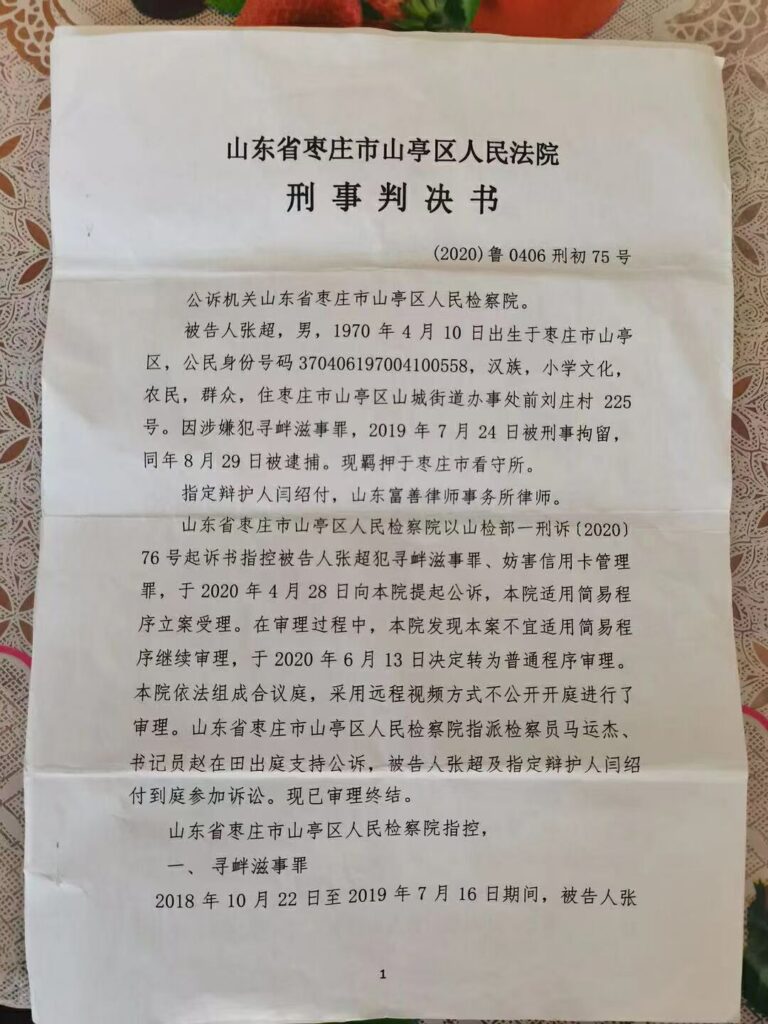 山东省枣庄市山亭区人民法院
刑事判决书
(2020)鲁 0406 刑初 75 号
公诉机关山东省枣庄市山亭区人民检察院。
被告人张超，男，1970 年 4 月 10 日出生于枣庄市山亭
区，公民身份号码 370406197004100558，汉族，小学文化，
农民，群众，住枣庄市山亭区山城街道办事处前刘庄村 225
号。因涉嫌犯寻衅滋事罪，2019 年 7 月 24 日被刑事拘留，
同年 8 月 29 日被逮捕。现羁押于枣庄市看守所。
指定辩护人闫绍付，山东富善律师事务所律师。
山东省枣庄市山亭区人民检察院以山检部一刑诉〔2020〕
76 号起诉书指控被告人张超犯寻衅滋事罪、妨害信用卡管理
罪，于 2020 年 4 月 28 日向本院提起公诉，本院适用简易程
序立案受理。在审理过程中，本院发现本案不宜适用简易程
序继续审理，于 2020 年 6 月 13 日决定转为普通程序审理。
本院依法组成合议庭，采用远程视频方式不公开开庭进行了
审理。山东省枣庄市山亭区人民检察院指派检察员马运杰、
书记员赵在田出庭支持公诉，被告人张超及指定辩护人闫绍
付到庭参加诉讼。现已审理终结。
山东省枣庄市山亭区人民检察院指控，
一、寻衅滋事罪
2018 年 10 月 22 日至 2019 年 7 月 16 日期间，被告人张
1